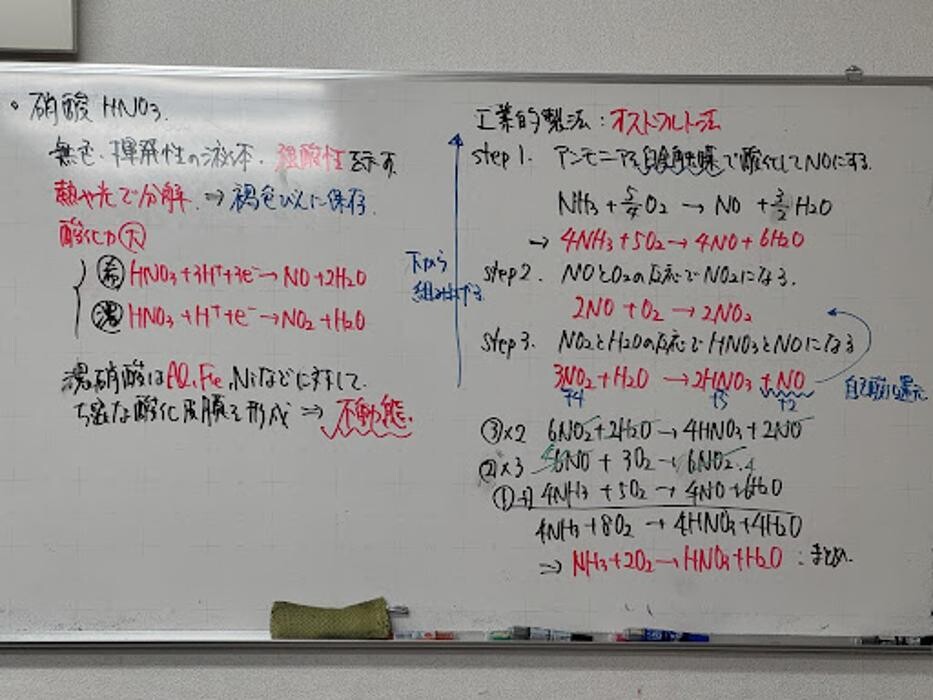 ・硝酸 HNO₃.
無色・揮発性の液体. 強酸性を示す.
熱や光で分解. ⇒ 褐色びんに保存.
酸化力 大
希 HNO₃+3H⁺+3e⁻→NO+2H₂O
濃 HNO₃+H⁺+e⁻→NO₂+H₂O
濃硝酸はAl,Fe,Niなどに対して.
ち密な酸化皮膜を形成 ⇒ 不動態.
下から
組み上げる
工業的製法:オストワルト法
step1. アンモニアを白金触媒で酸化してNOにする.
NH₃+5/4O₂ → NO +3/2H₂O
→ 4NH₃+5O₂→4NO+6H₂O
step2. NOとO₂の反応でNO₂になる.
2NO + O₂ → 2NO₂
step3. NO₂とH₂Oの反応でHNO₃とNOになる
3NO₂+H₂O →2HNO₃+NO
+4 +5 +2
自己酸化還元
③×2 6NO₂+2H₂O→4HNO₃+2NO
②×3 6NO + 3O₂→6NO₂. 4
①→ 4NH₃+5O₂ → 4NO+6H₂O
4NH₃+8O₂ → 4HNO₃+4H₂O
⇒ NH₃+2O₂→HNO₃+H₂O :まとめ.